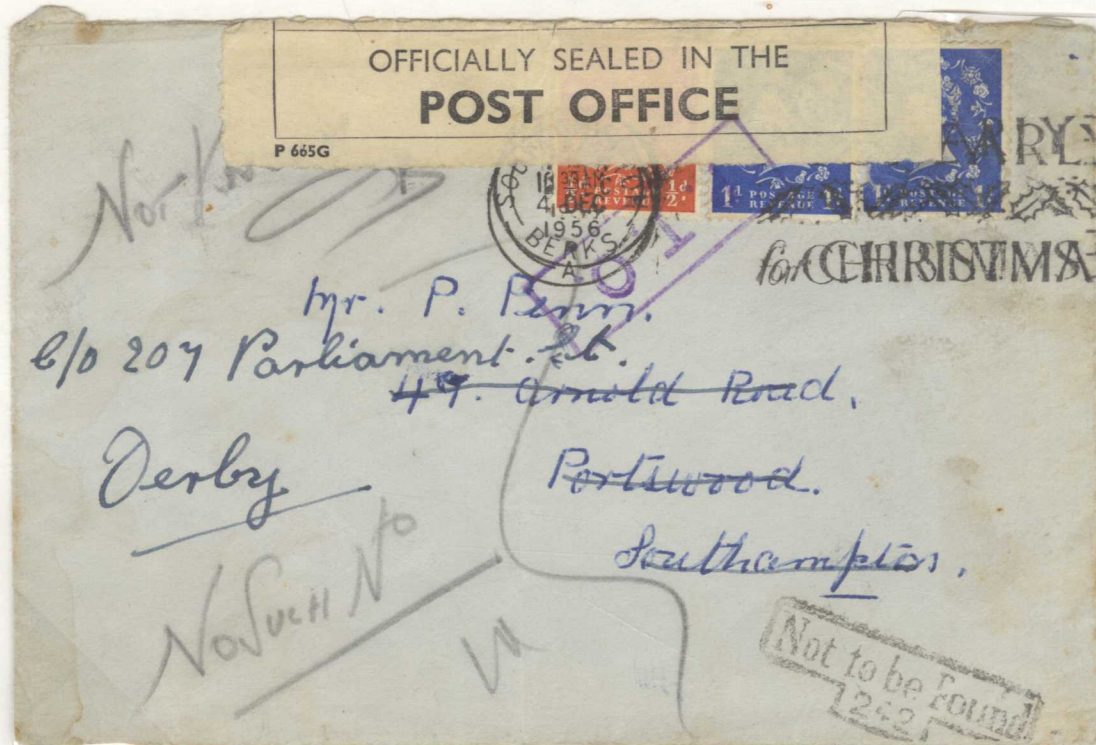 OFFICIALLY SEALED IN THE
POST OFFICE
P 665G
Not
1d POSTAGE REVENUE
½d
POSTAGE REVENUE
4 DEC
1956
BERKS.
A
EARLY
for CHRISTMAS
TO
Mr. P. Penn.
C/o 207 Parliament. St.
49. Arnold Road,
Derby
Portswood.
Southampton.
No Such No
Not to be Found
1242